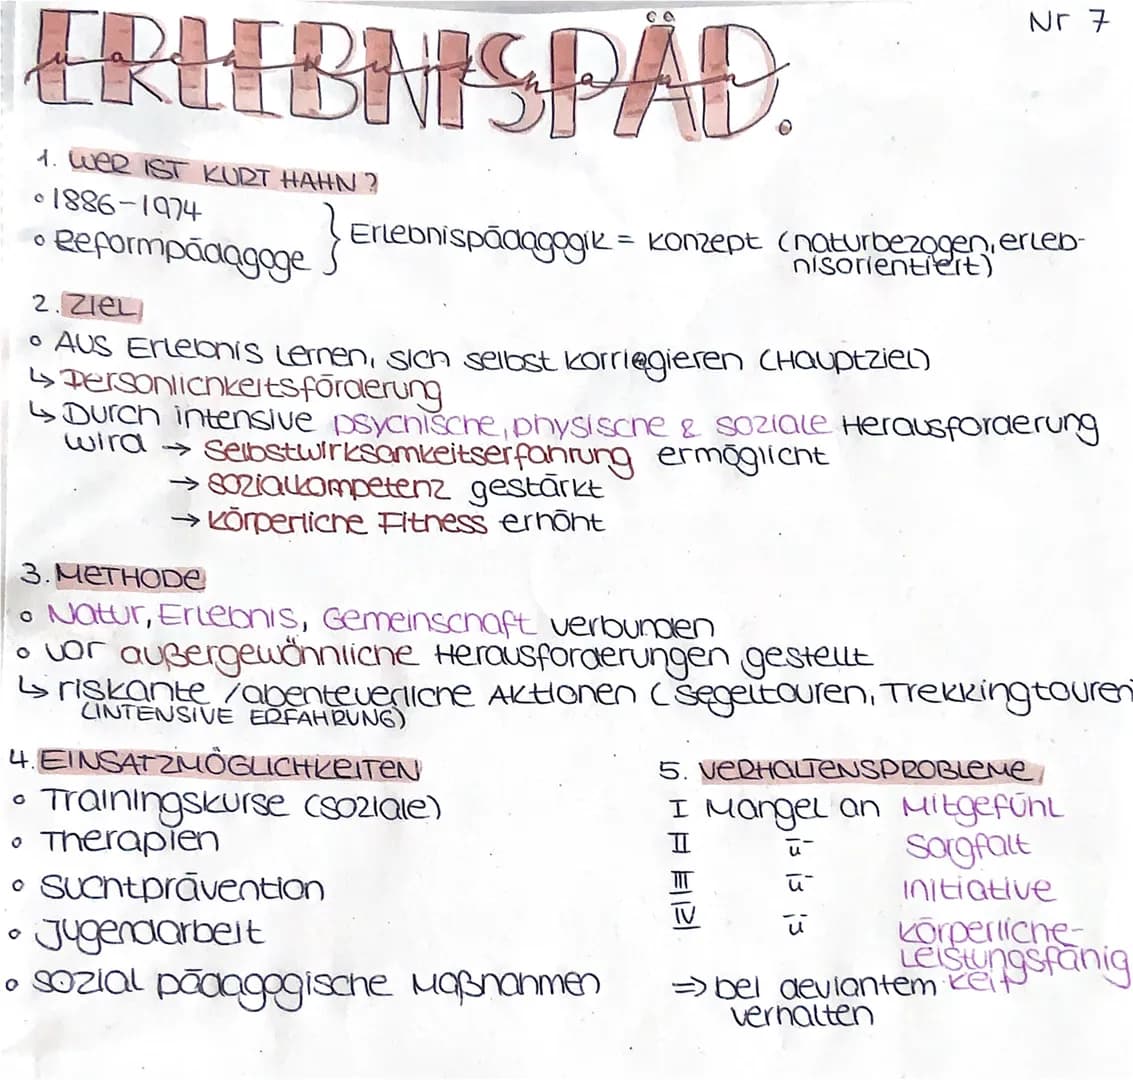 Nr 7
ERLEBNISPÄD.
nach Kurt Hahn
1. WER IST KURT HAHN?
• 1886-1974
• Reformpädagoge } Erlebnispädagogik = Konzept (naturbezogen, erleb-
nisorientiert)
2. ZIEL
• Aus Erlebnis lernen, sich selbst korriegieren (Hauptziel)
↳ Persönlichkeitsförderung
↳ Durch intensive psychische, physische & soziale Herausforderung
wird → Selbstwirksamkeitserfahrung ermöglicht
→ Sozialkompetenz gestärkt
→ körperliche Fitness erhöht
3. METHODE
• Natur, Erlebnis, Gemeinschaft verbunden
• vor außergewöhnliche Herausforderungen gestellt
↳ riskante / abenteuerliche Aktionen (Segeltouren, Trekkingtouren
(INTENSIVE ERFAHRUNG)
4. EINSATZMÖGLICHKEITEN
• Trainingskurse (soziale)
• Therapien
• Suchtprävention
• Jugendarbeit
• sozial pädagogische Maßnahmen
5. VERHALTENSPROBLEME
I Mangel an Mitgefühl
II -"- Sorgfalt
III -"- Initiative
IV -"- körperliche-
Leistungsfähig
keit
⇒ bei deviantem
verhalten